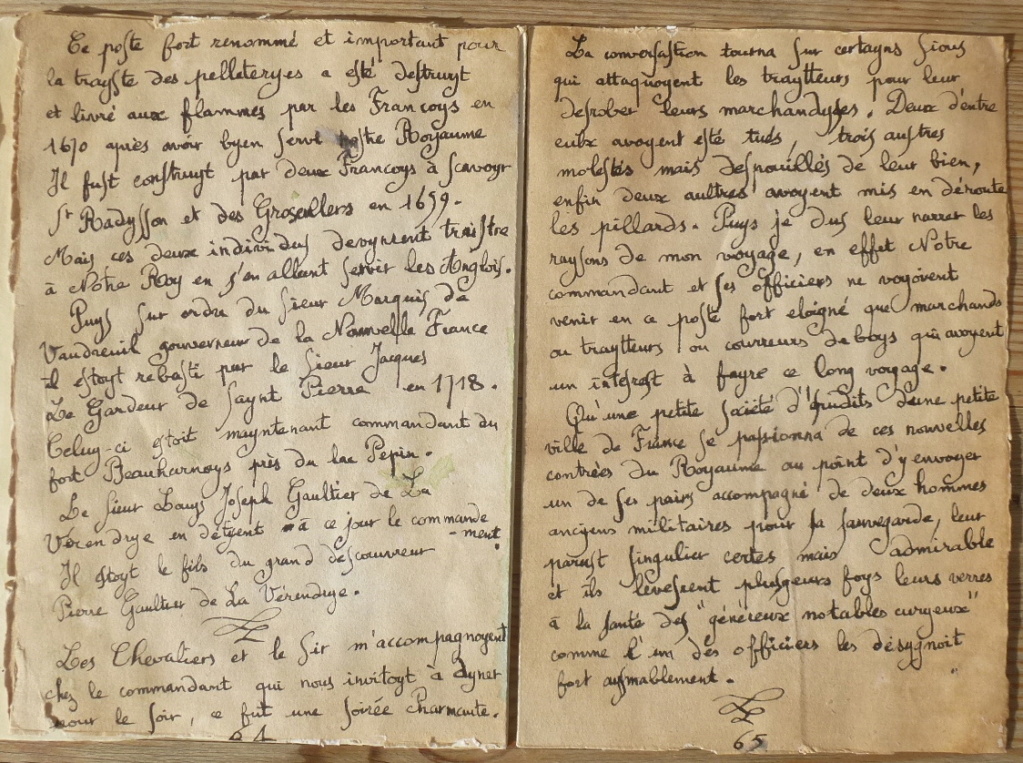 Ce poste fort renommé et important pour
la trayste des pelleteryes a esté destruyt
et livré aux flammes par les Françoys en
1670 après avoir byen servi nostre Royaume
Il fust construyt par deux Françoys à scavoyr
Sr Radysson et des Groseillers en 1659.
Mais ces deux individus devynrent traistre
à Notre Roy en s'en allant servir les Anglois.
Puys sur ordre du Sieur Marquis de
Vaudreuil gouverneur de la Nouvelle France
il estoyt rebasti par le Sieur Jacques
Le Gardeur de Saynt Pierre en 1718.
Celuy-ci estoit mayntenant commandant du
fort Beauharnoys près du lac Pepin.
Le Sieur Louys Joseph Gaultier de La
Vérendrye en détyent à ce jour le commande
-ment.
Il estoyt le fils du grand descouvreur
Pierre Gaultier de La Vérendrye.
Les Chevaliers et le Sir m'accompagnoyent
chez le commandant qui nous invitoyt à dyner
pour le soir, ce fut une soirée charmante.
64
La conversastion tourna sur certayns Sious
qui attaquoyent les traytteurs pour leur
desrober leurs marchandyses. Deux d'entre
eulx avoyent esté tués, trois austres
molestés mais despouillés de leur bien,
enfin deux aultres avoyent mis en déroute
les pillards. Puys je dus leur narrer les
raysons de mon voyage, en effet Notre
commandant et ses officiers ne voyoivent
venir en ce poste fort eloigné que marchands
ou traytteurs ou courreurs de boys qui avoyent
un intesrest à fayre ce long voyage.
Qu'une petite société d'érudits d'une petite
ville de France se passionna de ces nouvelles
contrées du Royaume au point d'y envoyer
un de ses pairs accompagné de deux hommes
ancyens militaires pour sa sauvegarde, leur
parust singulier certes mais admirable
et ils levesrent plusyeurs foys leurs verres
à la santé des "généreux notables curyeux"
comme l'un des officiers les désygnoit
fort aysmablement.
65